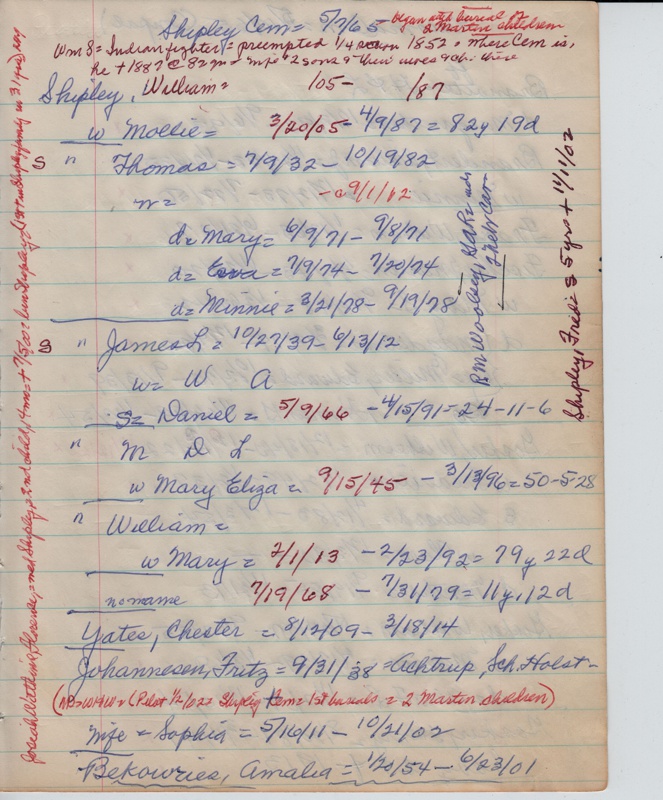 Shipley Cem = 5/7/65 began with burial of
2 Martin children
Wm S = Indian fighter = preempted 1/4 section 1852 = where Cem is,
he + 1887 @ 82 m = wife + 2 sons + their wives + ch. there
Shipley, William = 105- /87
w Mollie = 3/20/05 - 4/9/87 = 82y 19d
S " Thomas = 7/9/32 - 10/19/82
w = - 9/1/02
d = Mary = 6/9/71 - 9/8/71
d = Eva = 7/9/74 - 7/20/74
d = Minnie = 3/21/78 - 9/19/78
S " James L = 10/27/39 - 6/13/12
w = W A
S = Daniel = 5/9/66 - 4/15/91 = 24-11-6
" M D L
w Mary Eliza = 9/15/45 - 3/13/96 = 50-5-28
" William =
w Mary = 2/1/13 - 2/23/92 = 79y 22d
no name 7/19/68 - 7/31/79 = 11y, 12d
Yates, Chester = 8/12/09 - 3/18/14
Johannesen, Fritz = 9/31/38 = Achtrup, Sch. Holst-
(Pilot 1/2/02 = Shipley Cem = 1st burials = 2 Martin children)
wife = Sophia = 5/16/11 - 10/21/02
Bekowries, Amalia = 1/20/54 - 6/23/01
Shipley, Fred = S 5yrs + 14/11/02
RM Wooley,
their Cem